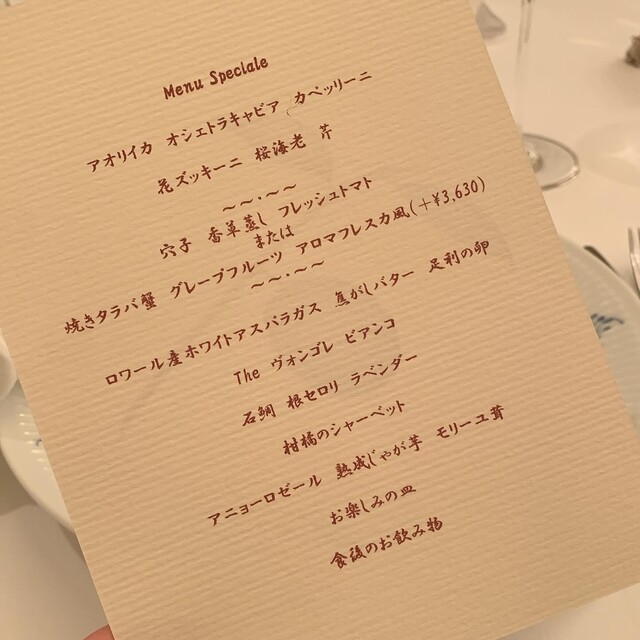 Menu Speciale
アオリイカ オシェトラキャビア カペッリーニ
花ズッキーニ 桜海老 芹
～～・～～
穴子 香草蒸し フレッシュトマト
または
焼きタラバ蟹 グレープフルーツ アロマフレスカ風(＋¥3,630)
～～・～～
ロワール産ホワイトアスパラガス 焦がしバター 足利の卵
The ヴォンゴレ ビアンコ
石鯛 根セロリ ラベンダー
柑橘のシャーベット
アニョーロゼール 熟成じゃが芋 モリーユ茸
お楽しみの皿
食後のお飲み物